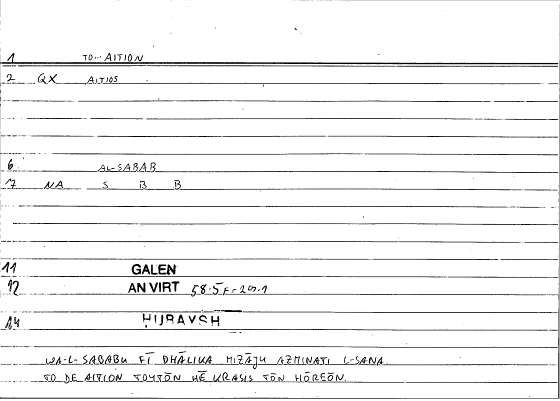 1 TO·· AITION
2 QX AITIOS
6 AL-SABAB
7 NA S B B
11 GALEN
12 AN VIRT
14 HUBAYSH
WA-L-SABABU FĪ DHĀLIKA MIZĀJU AZMINATI L-SANA
TO DE AITION TOYTŌN HĒ KRASIS TŌN HŌREŌN.